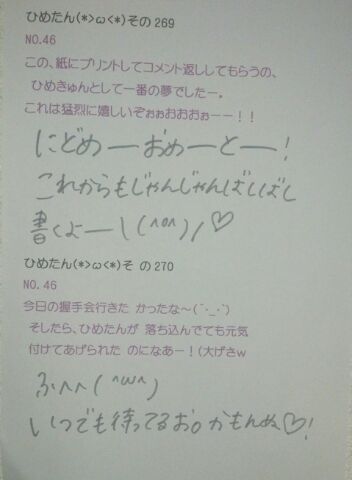 ひめたん(*>ω<*)その269
NO.46
この、紙にプリントしてコメント返ししてもらうの、
ひめきゅんとして一番の夢でしたー。
これは猛烈に嬉しいぞぉぉおおおぉーー！！
にどめーおめーとー!
これからもじゃんじゃんばしばし
書くよー\(^o^)/♡
ひめたん(*>ω<*)そ の270
NO.46
今日の握手会行きた かったな～(´･_･`)
そしたら、ひめたんが 落ち込んでても元気
付けてあげられた のになあー！(大げさw
ふへへ(^ω^)
いつでも待ってるお。かもんぬ♡!